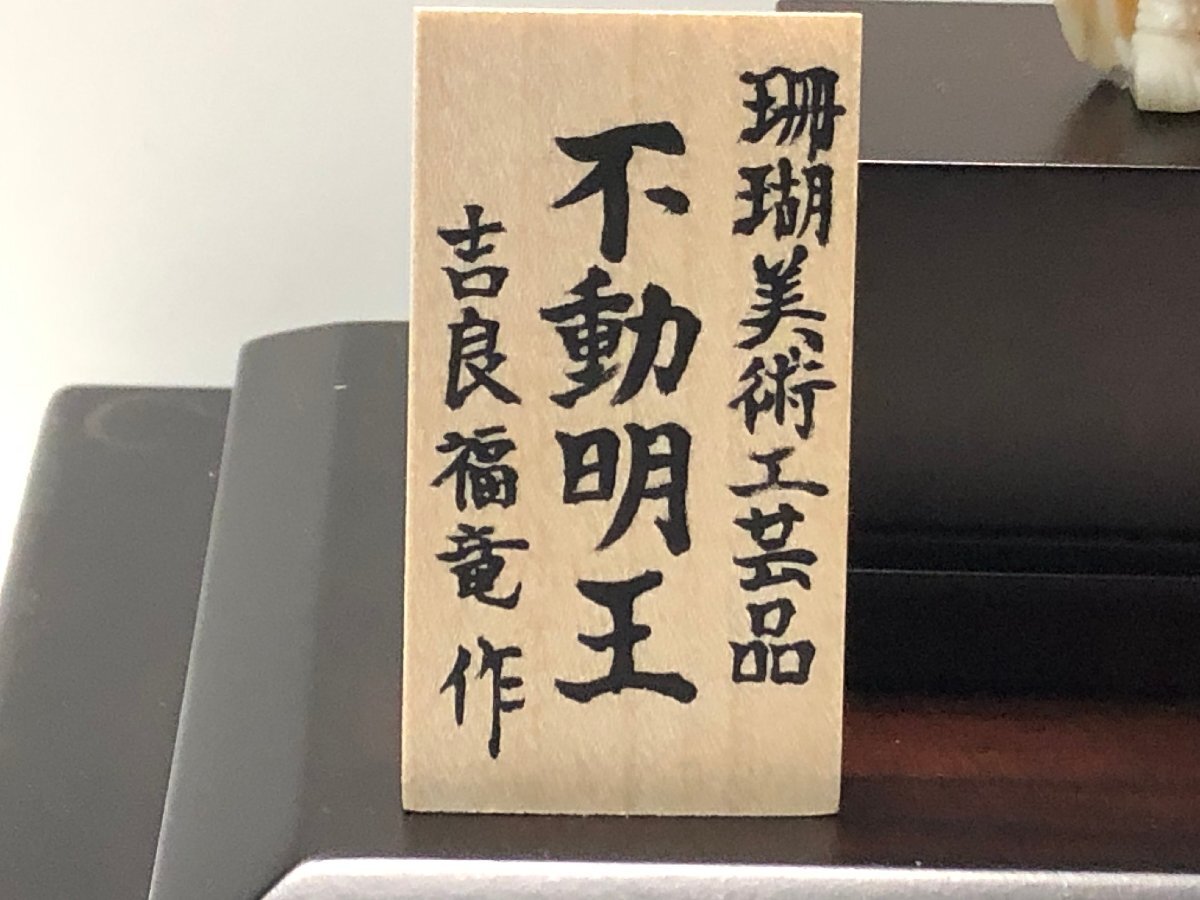 珊瑚美術工芸品
不動明王
吉良福竜作